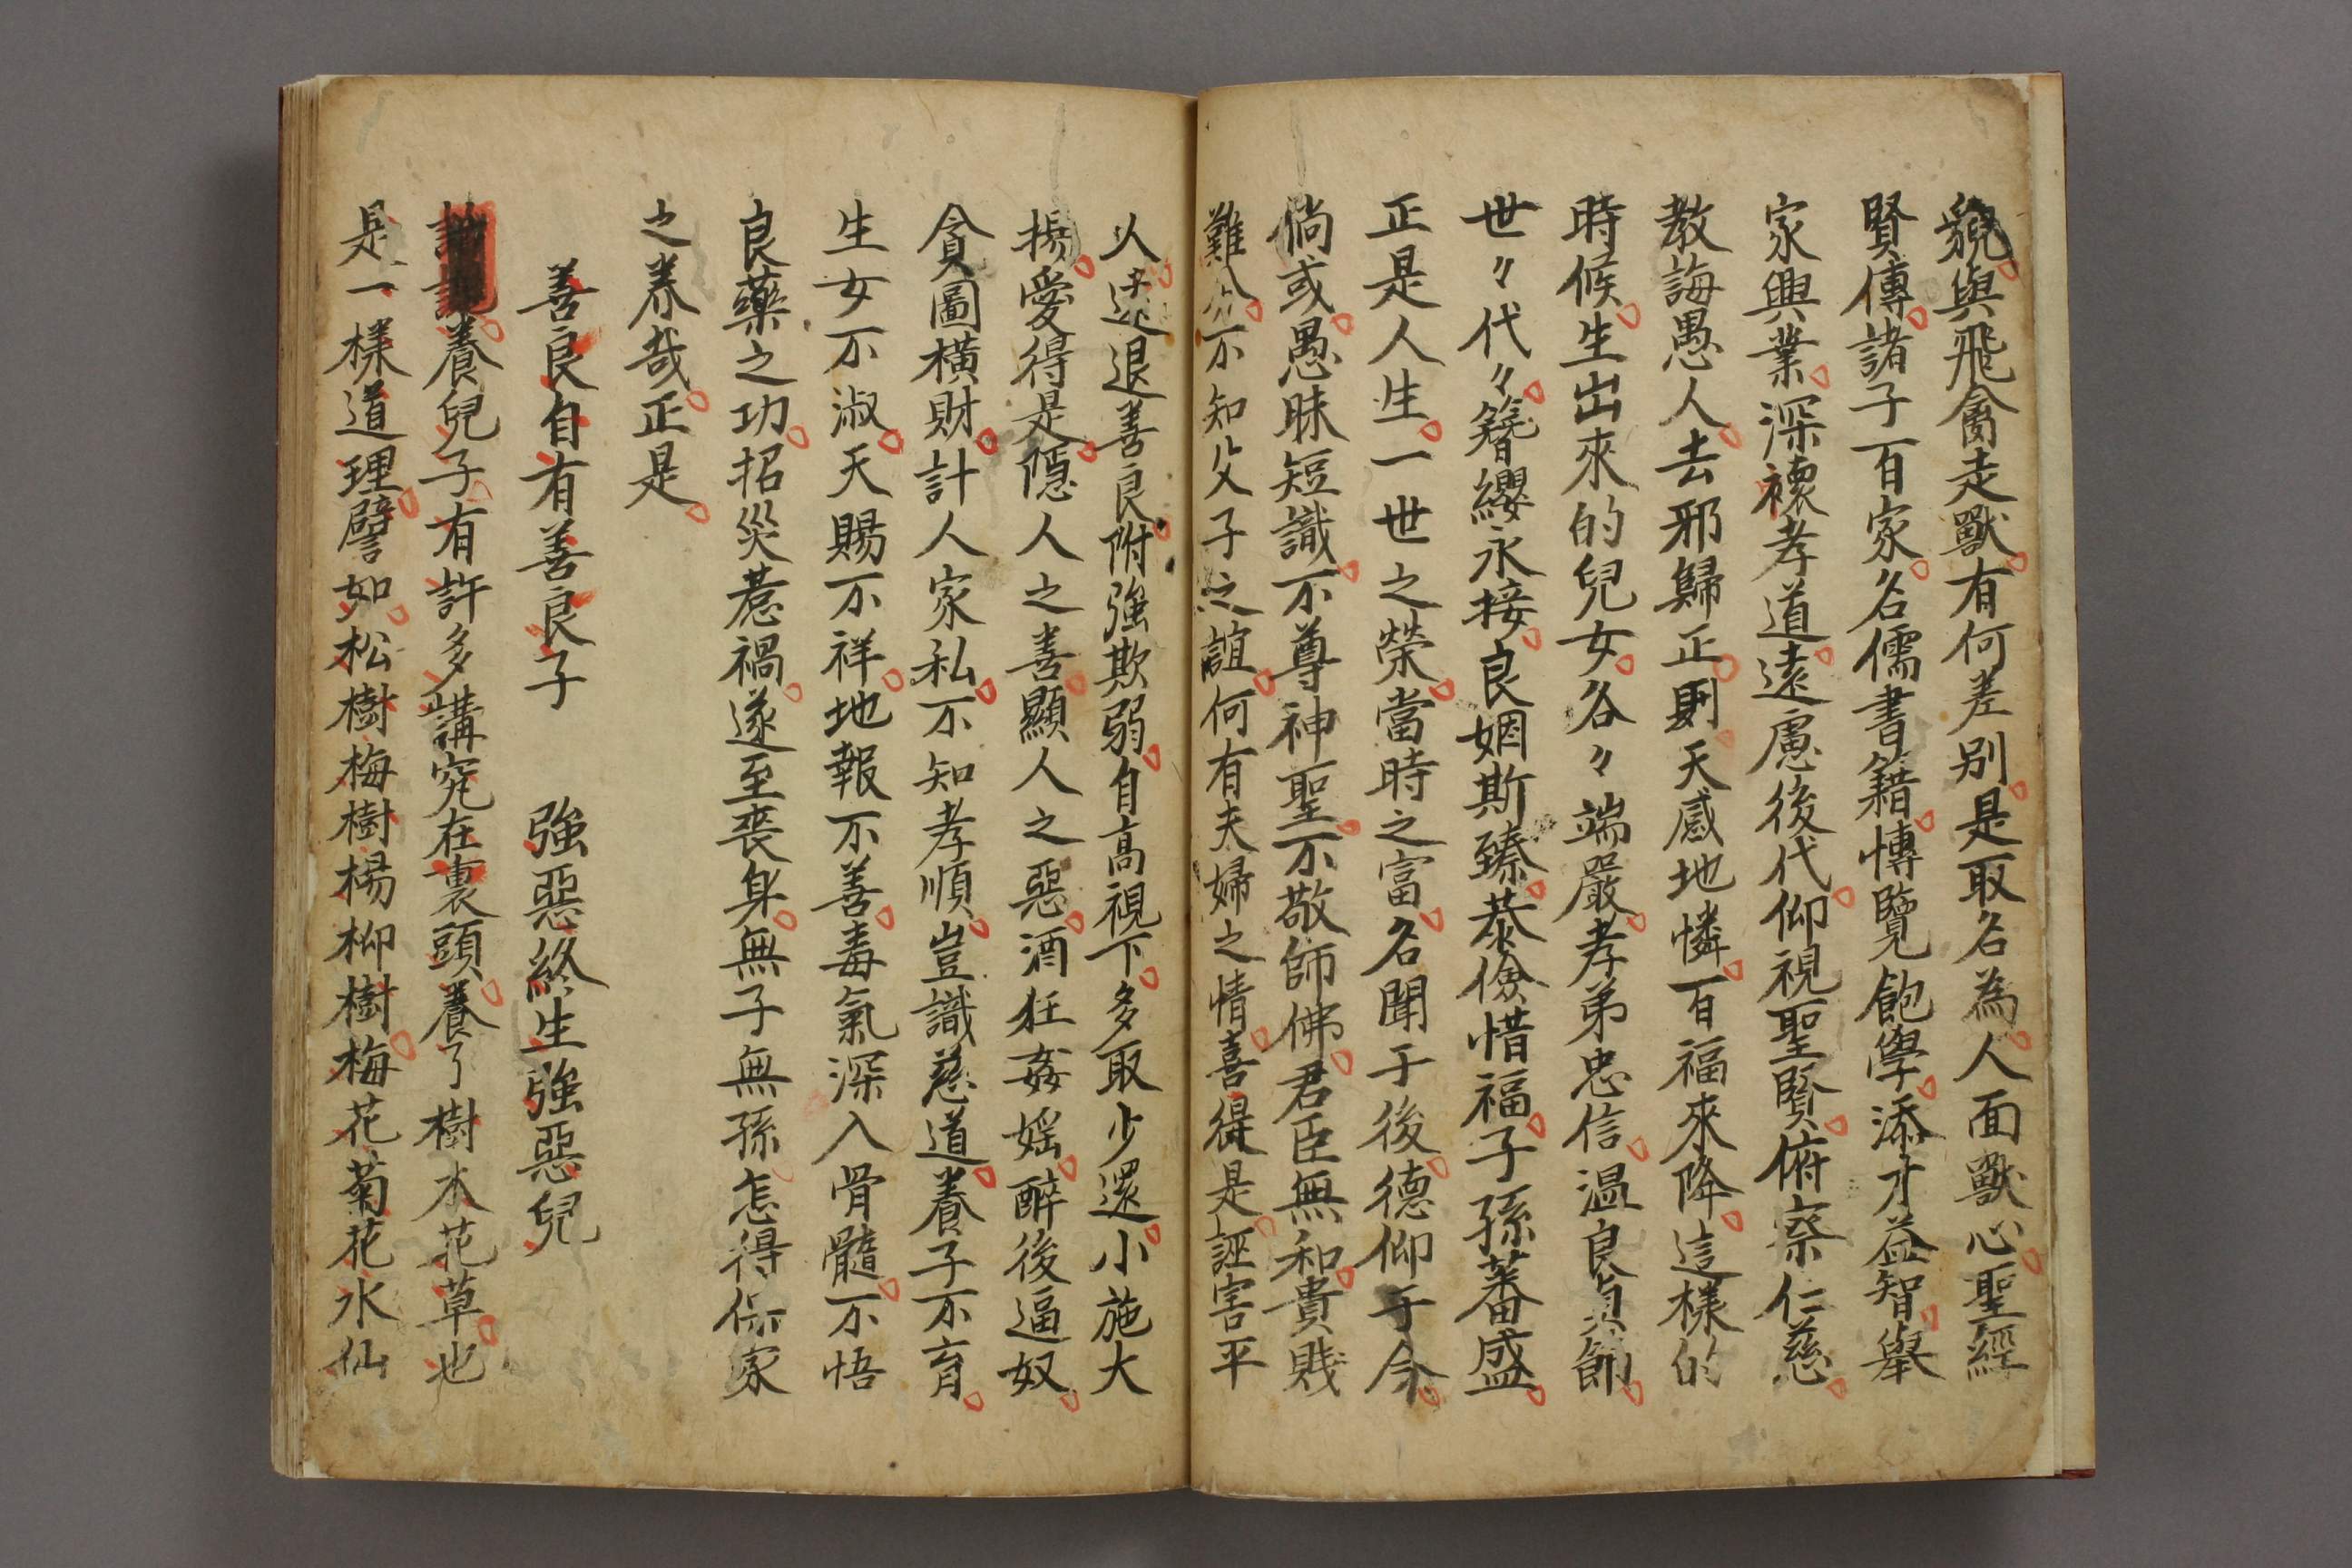 貌與飛禽走獸有何差別是取名為人面獸心聖經
賢傳諸子百家名儒書籍博覽飽學添才益智舉
家興業深褱孝道遠慮後代仰視聖賢俯察仁慈
教誨愚人去邪歸正則天感地憐百福來降這樣的
時候生出來的兒女各〻端嚴孝弟忠信溫良貞節
世〻代〻簪纓永接良姻斯臻恭儉惜福子孫蕃盛
正是人生一世之榮當時之富名聞于後德仰于今
倘或愚昧短識不尊神聖不敬師佛君臣無和貴賤
難分不知父子之誼何有夫婦之情喜得是誣害平
人遠退善良附強欺弱自高視下多取少還小施大
揚愛得是隱人之善顯人之惡酒狂姦婬醉後逼奴
貪圖橫財計人家私不知孝順豈識慈道養子不育
生女不淑天賜不祥地報不善毒氣深入骨髓不悟
良藥之功招災惹禍遂至喪身無子無孫怎得保家
之泰哉正是
善良自有善良子　強惡終生強惡兒
養兒子有許多講究在裏頭養了樹木花草也
是一樣道理譬如松樹梅樹楊柳樹梅花菊花水仙